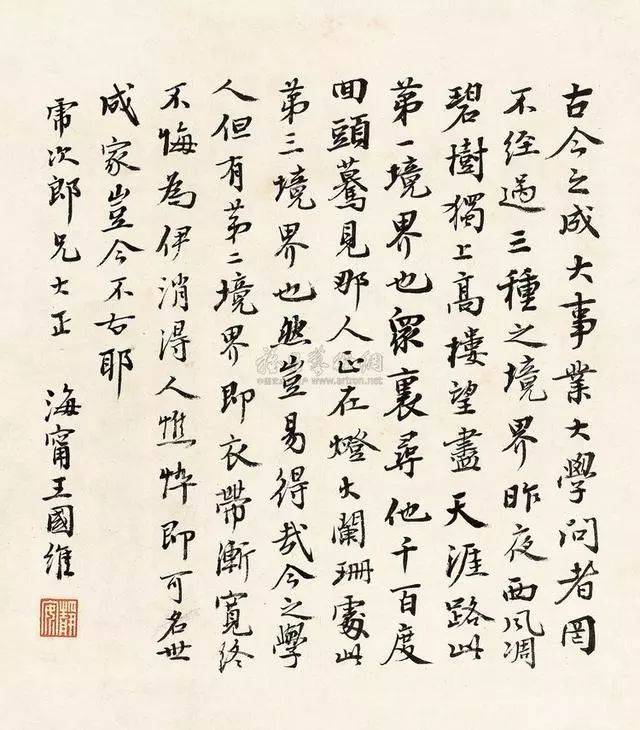 古今之成大事業大學問者罔
不經過三種之境界昨夜西风凋
碧樹獨上高樓望盡天涯路此
第一境界也眾裏尋他千百度
回頭驀見那人正在燈火闌珊處此
第三境界也然豈易得哉今之學
人但有第二境界即衣帶漸寬終
不悔為伊消得人憔悴即可名世
成家豈今不古耶
常次郎兄大正
海甯王國維
www.artron.net